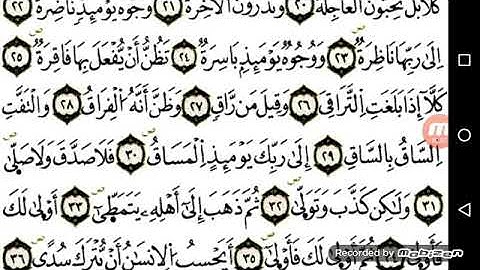 كَلَّا بَلْ تُحِبُّونَ الْعَاجِلَةَ ٢٠ وَتَذَرُونَ الْآخِرَةَ ٢١ وُجُوهٌ يَوْمَئِذٍ نَاضِرَةٌ ٢٢
إِلَىٰ رَبِّهَا نَاظِرَةٌ ٢٣ وَوُجُوهٌ يَوْمَئِذٍ بَاسِرَةٌ ٢٤ تَظُنُّ أَنْ يُفْعَلَ بِهَا فَاقِرَةٌ ٢٥
كَلَّا إِذَا بَلَغَتِ التَّرَاقِيَ ٢٦ وَقِيلَ مَنْ رَاقٍ ٢٧ وَظَنَّ أَنَّهُ الْفِرَاقُ ٢٨ وَالْتَفَّتِ
السَّاقُ بِالسَّاقِ ٢٩ إِلَىٰ رَبِّكَ يَوْمَئِذٍ الْمَسَاقُ ٣٠ فَلَا صَدَّقَ وَلَا صَلَّىٰ
٣١ وَلَٰكِنْ كَذَّبَ وَتَوَلَّىٰ ٣٢ ثُمَّ ذَهَبَ إِلَىٰ أَهْلِهِ يَتَمَطَّىٰ ٣٣ أَوْلَىٰ لَكَ
فَأَوْلَىٰ أَوْلَىٰ لَكَ فَأَوْلَىٰ ٣٥ أَيَحْسَبُ الْإِنْسَانُ أَنْ يُتْرَكَ سُدًى ٣٦
Recorded by mobizen